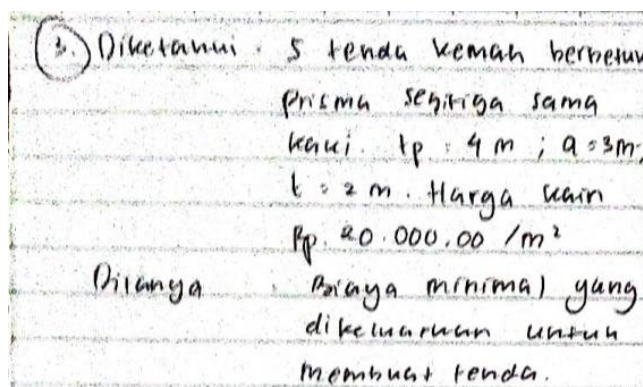 3. Diketahui : 5 tenda kemah berbetuk
prisma segitiga sama
kaki. tp = 4 m ; a = 3m.
t = 2 m. Harga kain
Rp. 20.000,00 /m²
Ditanya : Biaya minimal yang
dikeluarkan untuk
membuat tenda.